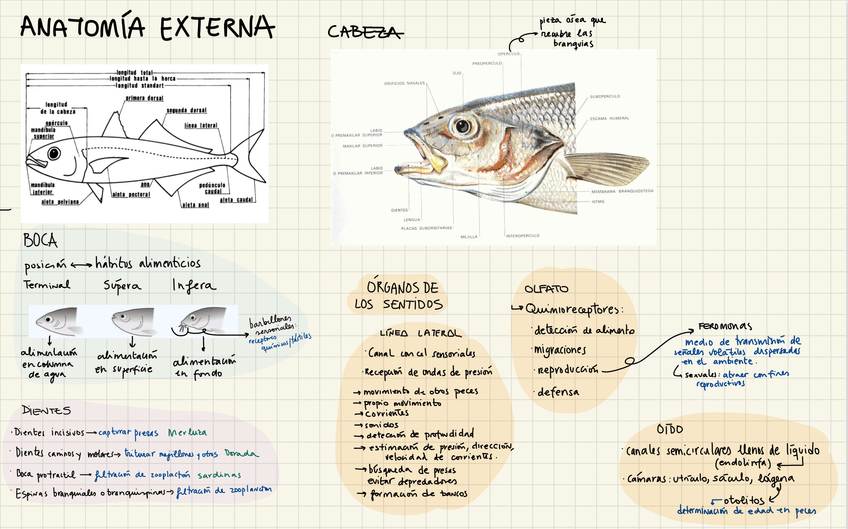 ANATOMÍA EXTERNA
longitud total
longitud hasta la horca
longitud standart
longitud
de la cabeza
primera dorsal
segunda dorsal
opérculo
linea lateral
mandibula
superior
mandibula
inferior
aleta pelviana
aleta pectoral
ano
aleta anal
pedúnculo
caudal
aleta caudal
CABEZA
pieza ósea que
recubre las
branquias
OPERCULO
PREOPERCULO
OJO
ORIFICIOS NASALES
SUBOPERCULO
ESCAMA HUMERAL
LABIO
O PREMAXILAR SUPERIOR
MAXILAR SUPERIOR
LABIO
O PREMAXILAR INFERIOR
DIENTES
LENGUA
PLACAS SUBORBITARIAS
MEJILLA
INTEROPERCULO
MEMBRANA BRANQUIOSTEGA
ISTMO
BOCA
posición ↔ hábitos alimenticios
Terminal Súpera Ínfera
barbillones
sensoriales:
receptores
químicos/táctiles
alimentación
en columna
de agua
alimentación
en superficie
alimentación
en fondo
DIENTES
· Dientes incisivos → capturar presas Merluza
· Dientes caninos y molares → triturar mejillones y otros Dorada
· Boca protractil → filtración de zooplancton sardinas
· Espinas branquiales o branquispinas → filtración de zooplancton
ÓRGANOS DE
LOS SENTIDOS
LÍNEA LATERAL
· Canal con cél sensoriales
· Recepción de ondas de presión
→ movimiento de otros peces
→ propio movimiento
→ corrientes
→ sonidos
→ detección de profundidad
→ estimación de presión, dirección,
velocidad de corrientes.
→ búsqueda de presas
evitar depredadores
→ formación de bancos
OLFATO
↳ Quimiorreceptores:
· detección de alimento
· migraciones
· reproducción
· defensa
FEROMONAS
medio de transmisión de
señales volátiles dispersadas
en el ambiente.
↳ sexuales: atraer con fines
reproductivos
OÍDO
· canales semicirculares llenos de líquido
(endolinfa)
· Cámaras: utrículo, sáculo, lagena
→ otolitos
determinación de edad en peces